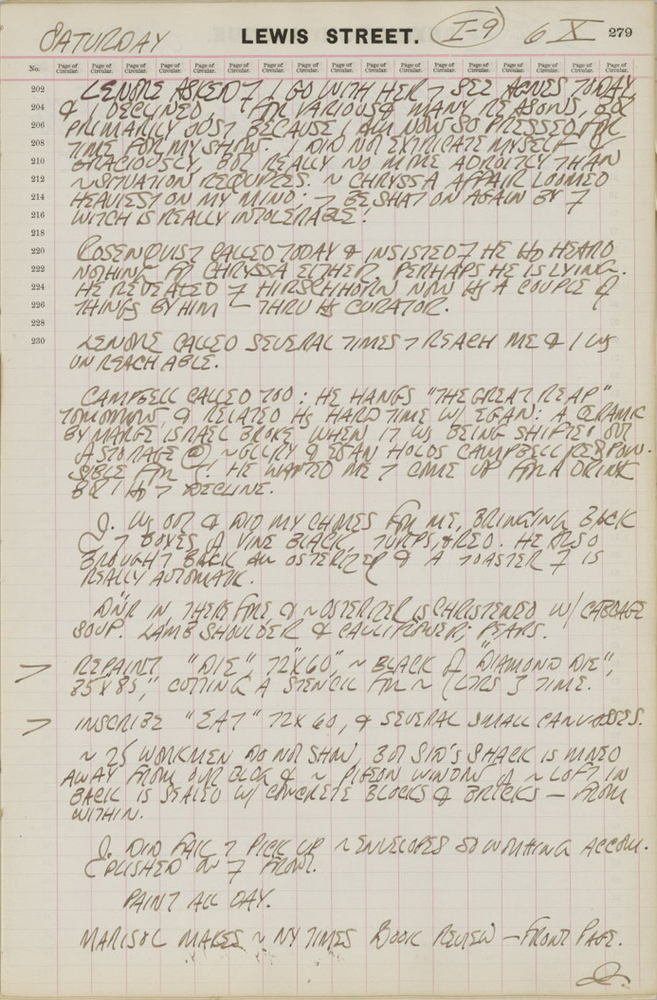 SATURDAY LEWIS STREET. I-9 6 X 279
No. Page of Circular. Page of Circular. Page of Circular. Page of Circular. Page of Circular. Page of Circular. Page of Circular. Page of Circular. Page of Circular. Page of Circular. Page of Circular. Page of Circular. Page of Circular.
202 LENORE ASKED 7 I GO WITH HER 7 SEE AGNES TODAY
204 & I DECLINED, FOR VARIOUS & MANY REASONS, BUT
206 PRIMARILY JUST BECAUSE I AM NOW SO PRESSED FOR
208 TIME FOR MY SHOW. I DID NOT EXTRICATE MYSELF
210 GRACIOUSLY, BUT REALLY NO MORE ADROITLY THAN
212 ~ SITUATION REQUIRES. ~ CHRYSSA AFFAIR LOOMED
214 HEAVIEST ON MY MIND: 7 BE SHAT ON AGAIN BY 7
216 WITCH IS REALLY INTOLERABLE!
218
220 ROSENQUIST CALLED TODAY & INSISTED 7 HE HD HEARD
222 NOTHING FR CHRYSSA EITHER. PERHAPS HE IS LYING.
224 HE REVEALED 7 HIRSCHHORN NOW HS A COUPLE OF
226 THINGS BY HIM — THRU HS CURATOR.
228
230 LENORE CALLED SEVERAL TIMES 7 REACH ME & I WS
UNREACHABLE.
CAMPBELL CALLED TOO: HE HANGS "THE GREAT REAP"
TOMORROW, & RELATED HS HARD TIME W/ EGAN: A CERAMIC
BY MARGE ISRAEL BROKE WHEN IT WS BEING SHIFTED OUT
STORAGE @ ~ GLLRY & EGAN HOLDS CAMPBELL RESPON-
SIBLE FOR IT. HE WANTED ME 7 COME UP FOR A DRINK
BUT I HD 7 DECLINE.
J. WS OUT & DID MY CHORES FOR ME, BRINGING BACK
7 BOXES OF VINE BLACK, TURPS, & RED. HE ALSO
BROUGHT BACK AN OSTERIZER & A TOASTER 7 IS
REALLY AUTOMATIC.
DNR IN THEREFORE & ~ OSTERIZER IS CHRISTENED W/ CABBAGE
SOUP. LAMB SHOULDER & CAULIFLOWER; PEARS.
> REPAINT "DIE" 72"X60", ~ BLACK OF "DIAMOND DIE",
85"X85," CUTTING A STENCIL FOR ~ LTRS 3 TIME.
> INSCRIBE "EAT" 72X60, & SEVERAL SMALL CANVASSES.
~ 25 WORKMEN DO NOT SHOW, BUT SID'S SHACK IS MOVED
AWAY FROM OUR BLDG & ~ PIGEON WINDOW OF ~ LOFT IN
BACK IS SEALED W/ CONCRETE BLOCKS & BRICKS — FROM
WITHIN.
J. DID FAIL 7 PICK UP ~ ENVELOPES SO NOTHING ACCOM-
PLISHED ON 7 FRONT.
PAINT ALL DAY.
MARISOL MAKES ~ NY TIMES BOOK REVIEW — FRONT PAGE.